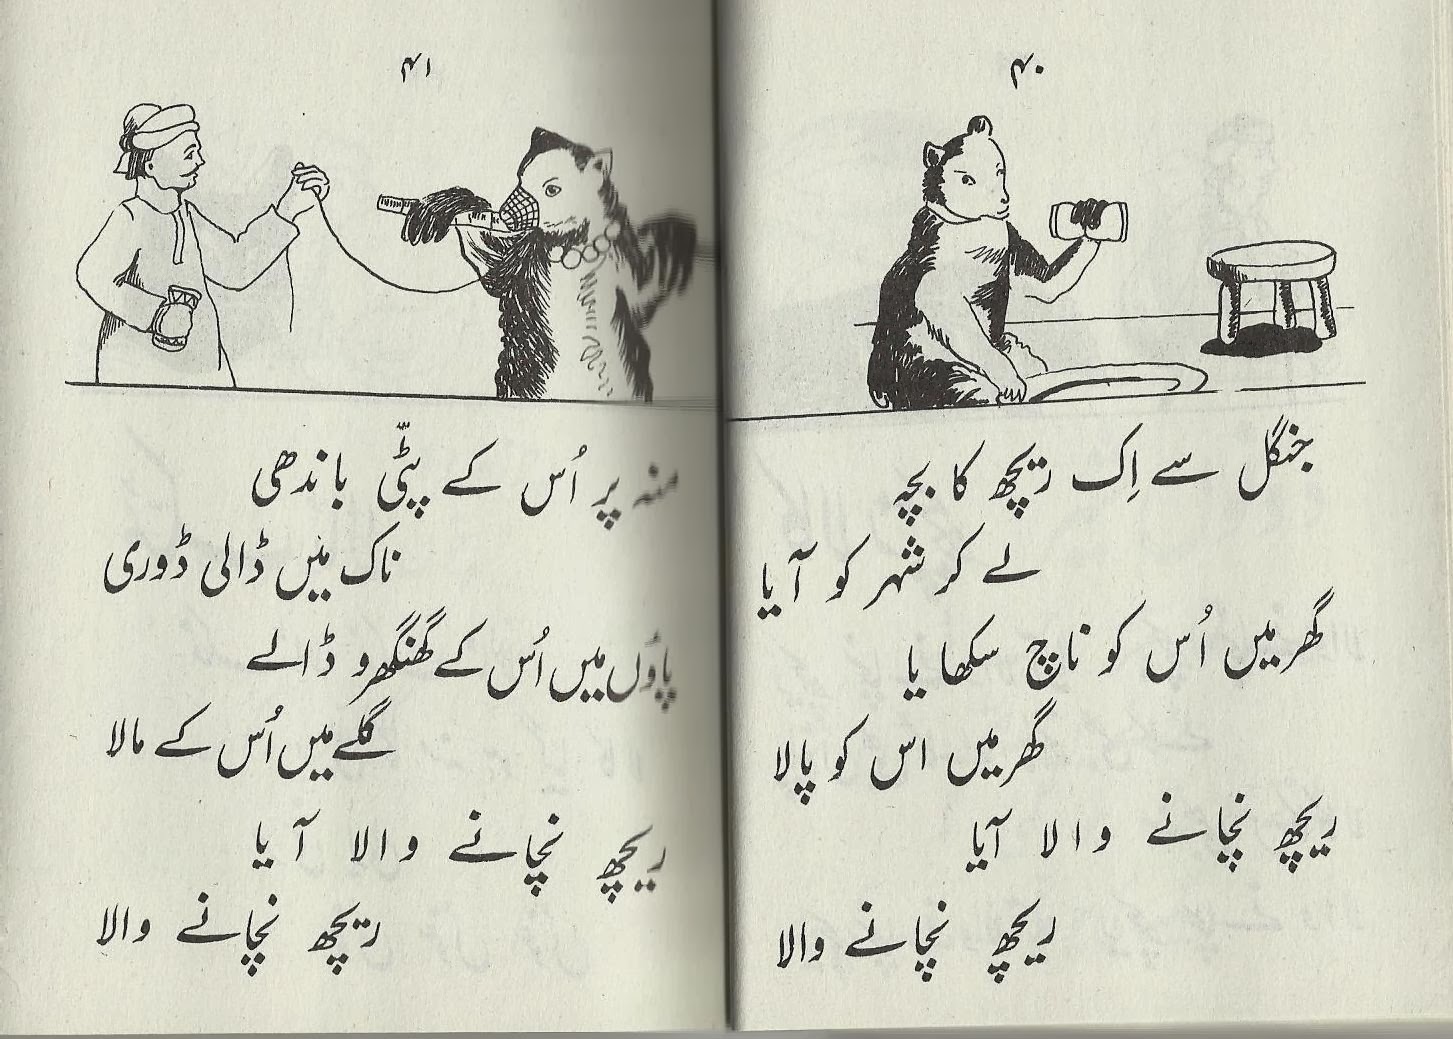 ۴۰
جنگل سے اِک ریچھ کا بچہ
لے کر شہر کو آیا
گھر میں اُس کو ناچ سکھایا
گھر میں اس کو پالا
ریچھ نچانے والا آیا
ریچھ نچانے والا
۴۱
منہ پر اُس کے پٹّی باندھی
ناک میں ڈالی ڈوری
پاؤں میں اُس کے گھنگھرو ڈالے
گلے میں اُس کے مالا
ریچھ نچانے والا آیا
ریچھ نچانے والا